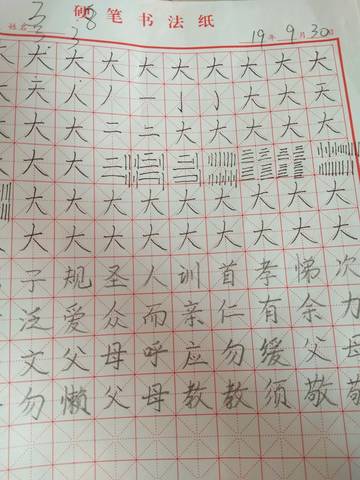 硬笔书法纸
姓名
19年9月30日
大大大大大大大大大
人一大大
大大二二大大大大大
大大大
大大大大大大大大大
大大大大大大大大大
子规圣人训首孝悌次
泛爱众而亲仁有余力
文父母呼应勿缓父母
勿懒父母教教须敬敬